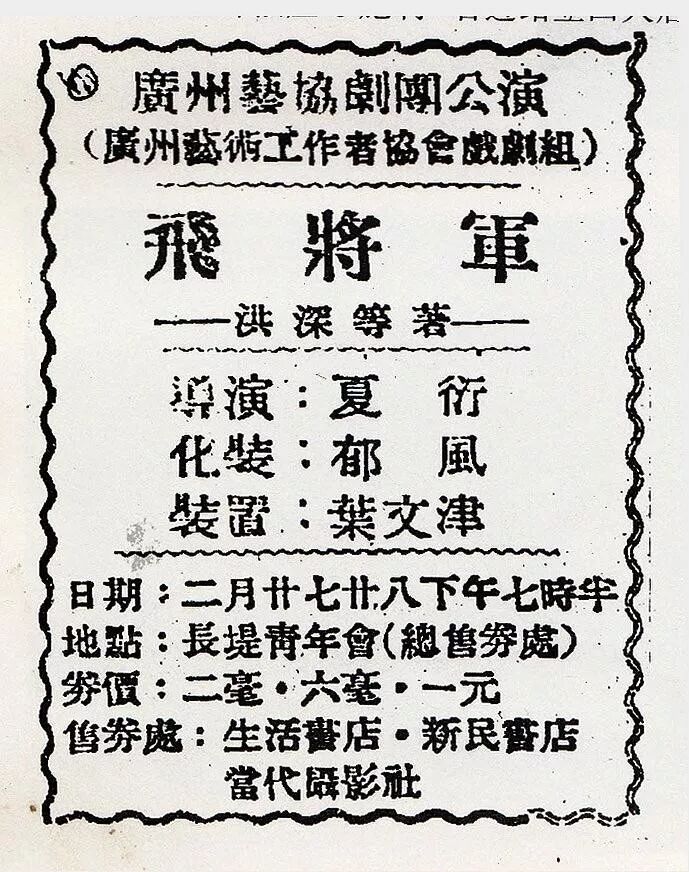 廣州藝協劇團公演
（廣州藝術工作者協會戲劇組）
飛將軍
——洪深等著——
導演：夏衍
化裝：郁風
裝置：葉文津
日期：二月廿七廿八下午七時半
地點：長堤青年會（總售券處）
券價：二毫・六毫・一元
售券處：生活書店・新民書店
當代攝影社